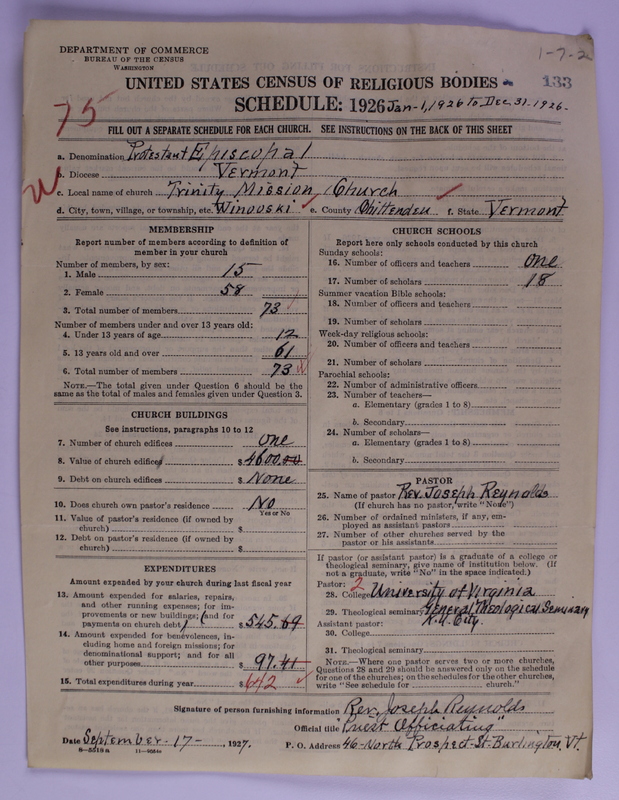 DEPARTMENT OF COMMERCE
BUREAU OF THE CENSUS
WASHINGTON
1-7-2
UNITED STATES CENSUS OF RELIGIOUS BODIES
133
SCHEDULE: 1926 Jan-1, 1926 To Dec. 31. 1926.
75
FILL OUT A SEPARATE SCHEDULE FOR EACH CHURCH. SEE INSTRUCTIONS ON THE BACK OF THIS SHEET
a. Denomination Protestant Episcopal
b. Diocese Vermont
c. Local name of church Trinity Mission Church
d. City, town, village, or township, etc. Winooski e. County Chittenden f. State Vermont
MEMBERSHIP
Report number of members according to definition of
member in your church
Number of members, by sex:
1. Male 15
2. Female 58
3. Total number of members 73
Number of members under and over 13 years old:
4. Under 13 years of age 12
5. 13 years old and over 61
6. Total number of members 73
NOTE.—The total given under Question 6 should be the
same as the total of males and females given under Question 3.
CHURCH BUILDINGS
See instructions, paragraphs 10 to 12
7. Number of church edifices one
8. Value of church edifices $ 4600.00
9. Debt on church edifices $ None
10. Does church own pastor's residence No
Yes or No
11. Value of pastor's residence (if owned by
church) $
12. Debt on pastor's residence (if owned by
church) $
EXPENDITURES
Amount expended by your church during last fiscal year
13. Amount expended for salaries, repairs,
and other running expenses; for im-
provements or new buildings; (and for
payments on church debt) $ 545.69
14. Amount expended for benevolences, in-
cluding home and foreign missions; for
denominational support; and for all
other purposes $ 97.41
15. Total expenditures during year $ 642
CHURCH SCHOOLS
Report here only schools conducted by this church
Sunday schools:
16. Number of officers and teachers one
17. Number of scholars 18
Summer vacation Bible schools:
18. Number of officers and teachers
19. Number of scholars
Week-day religious schools:
20. Number of officers and teachers
21. Number of scholars
Parochial schools:
22. Number of administrative officers
23. Number of teachers—
a. Elementary (grades 1 to 8)
b. Secondary
24. Number of scholars—
a. Elementary (grades 1 to 8)
b. Secondary
PASTOR
25. Name of pastor Rev. Joseph Reynolds
(If church has no pastor, write "None")
26. Number of ordained ministers, if any, em-
ployed as assistant pastors
27. Number of other churches served by the
pastor or his assistants
If pastor (or assistant pastor) is a graduate of a college or
theological seminary, give name of institution below. (If
not a graduate, write "No" in the space indicated.)
Pastor: 2
28. College University of Virginia
29. Theological seminary General Theological Seminary
N.Y. City.
Assistant pastor:
30. College
31. Theological seminary
NOTE.—Where one pastor serves two or more churches,
Questions 28 and 29 should be answered only on the schedule
for one of the churches; on the schedules for the other churches,
write "See schedule for church."
Signature of person furnishing information Rev. Joseph Reynolds
Official title "Priest Officiating"
Date September-17-, 1927. P. O. Address 46-North Prospect-St-Burlington, Vt.
8-5518a